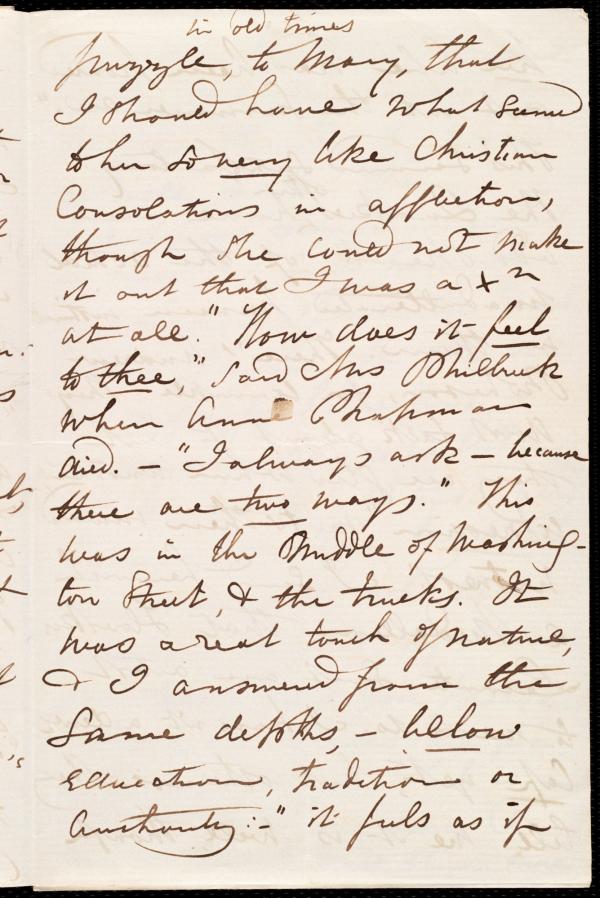 in old times
puzzle, to Mary, that
I should have what seemed
to her so very like Christian
Consolations in affliction,
though she could not make
it out that I was a Xn
at all." "How does it feel
to thee," said Mrs Philbrick
when Ann Chapman
died. – "I always ask – because
there are two ways." This
was in the Middle of Washing-
ton Street, & the trucks. It
was a real touch of nature,
& I answered from the
Same depths, – below
education, tradition or
Authority: – "it feels as if